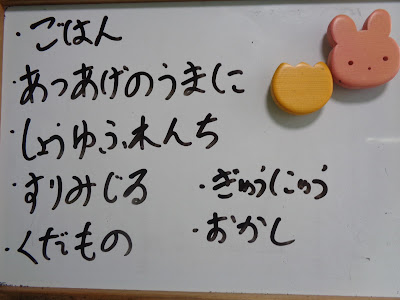 ・ごはん
・あつあげのうまに
・しょうゆふれんち
・すりみじる
・くだもの
・ぎゅうにゅう
・おかし